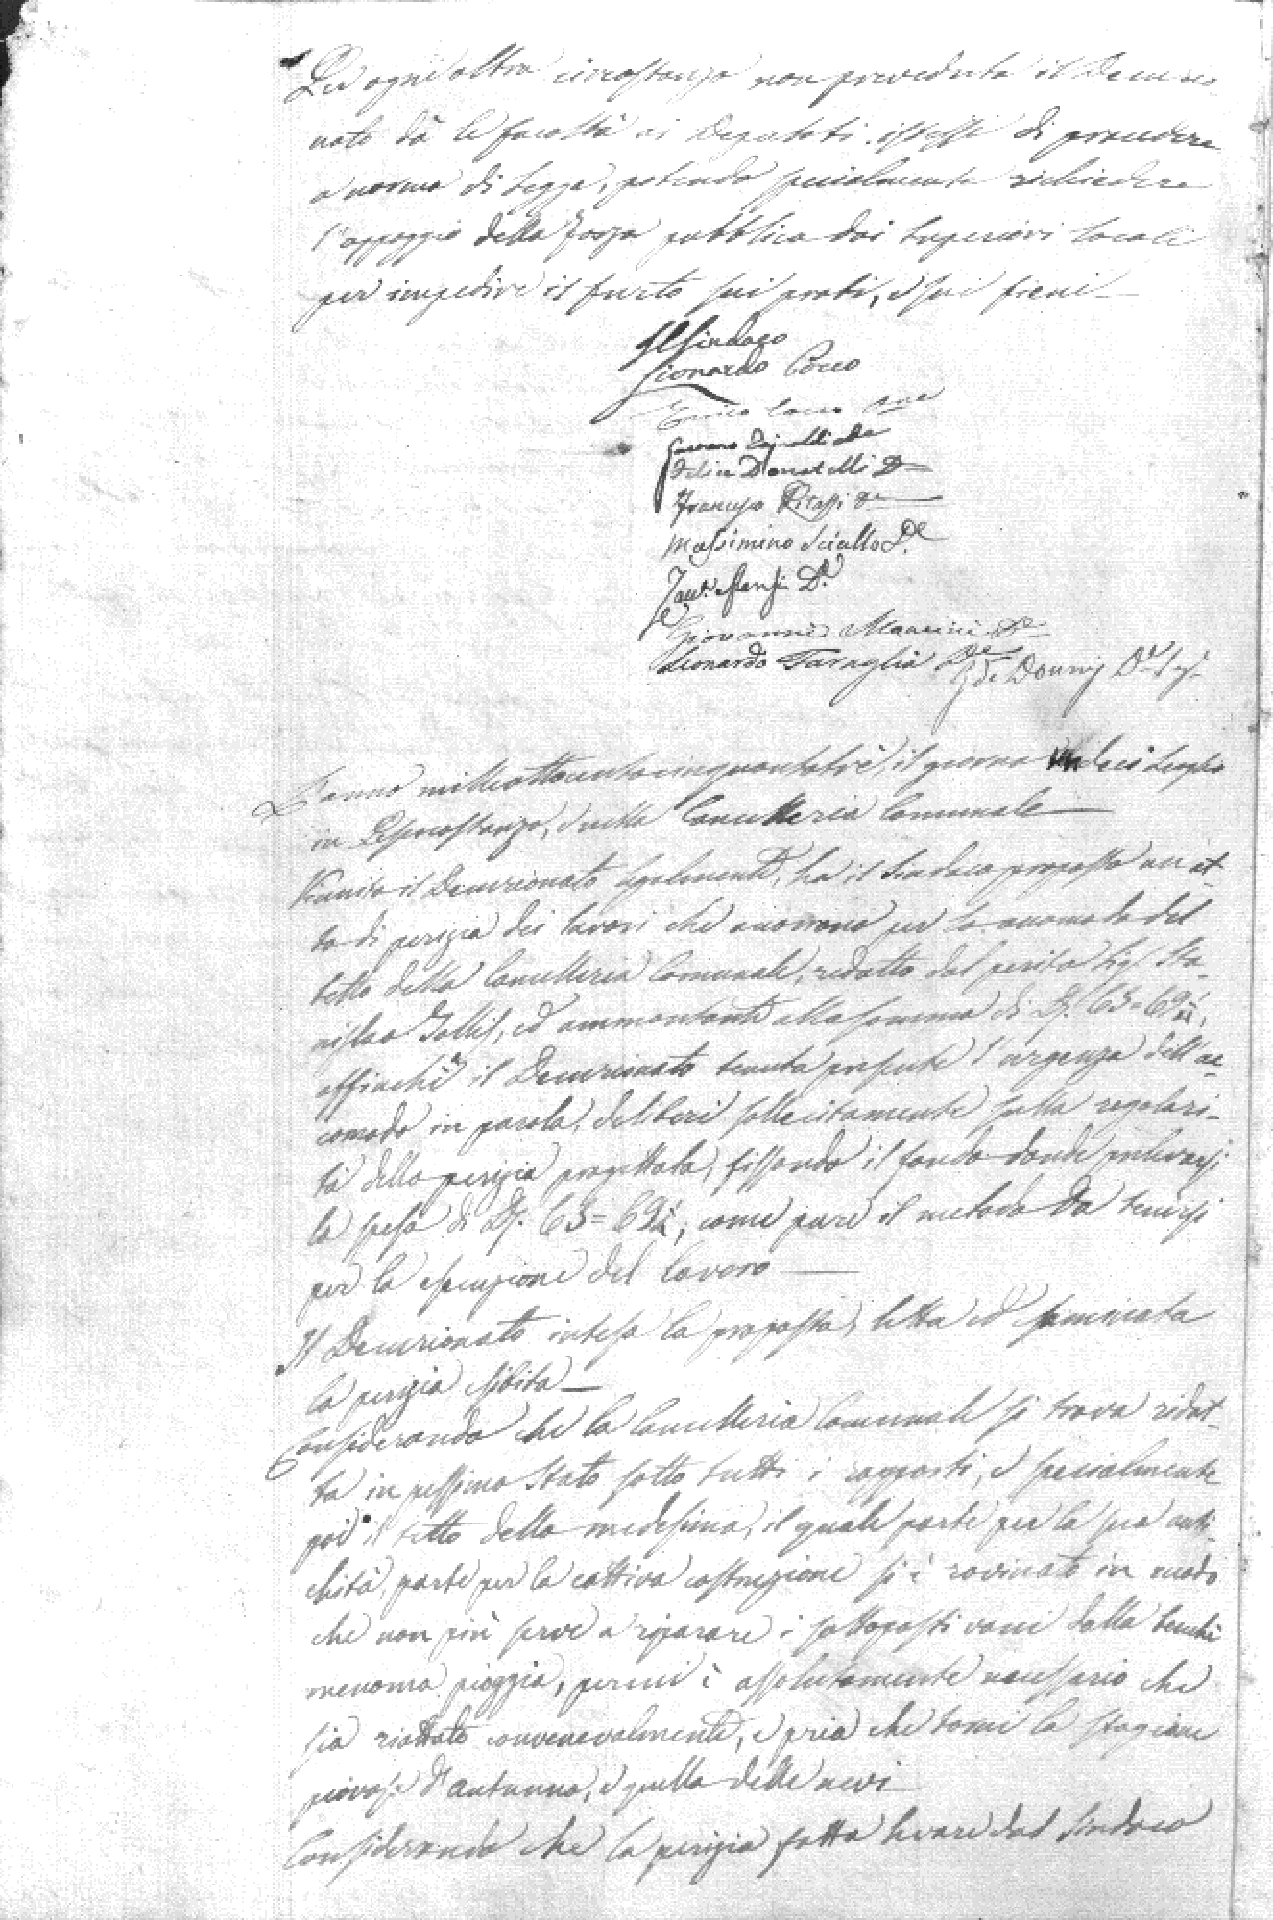 Per ogni altra circostanza non preveduta il Decurio
nato dà le facoltà ai Deputati istessi di procedere
a norma di Legge, potendo specialmente richiedere
l'appoggio della forza pubblica dai Superiori locali
per impedire il furto sui prati, e sui fieni
Il Sindaco
Lionardo Cocco
Enrico Cocco
Felice Donatelli De
Francesco Pitassi De
Massimino Sciullo De
Giovanni Mancini De
Leonardo Taraglia De
L'anno milleottocentocinquantatré, il giorno undeci Luglio
in Pescostanzo, e nella Cancelleria Comunale
Riunito il Decurionato legalmente, ha il Sindaco proposto un at-
to di perizia dei lavori che occorrono per lo accomodo del
tetto della Cancelleria Comunale, redatto dal perito Sig. Sta-
nislao, ed ammontante alla somma di D. 63=69½,
affinché il Decurionato tenuta presente l'urgenza dell'ac-
comodo in parola, deliberi sollecitamente sulla regolari-
tà della perizia progettata, fissando il fondo donde prelevarsi
la spesa di D. 63=69½, come pure il metodo da tenersi
per la esecuzione del lavoro
Il Decurionato intesa la proposta, letta ed esaminata
la perizia esibita
Considerando che la Cancelleria Comunale si trova ridot-
ta in pessimo stato sotto tutti i rapporti, e specialmente
poi il tetto della medesima, il quale parte per la sua anti-
chità, parte per la cattiva costruzione si è rovinato in modo
che non più serve a riparare i sottoposti vani dalla benché
menoma pioggia, percui è assolutamente necessario che
sia riattato convenevolmente, e pria che torni la stagione
piovosa d'autunno, e quella delle nevi
Considerando che la perizia fatta levare dal Sindaco